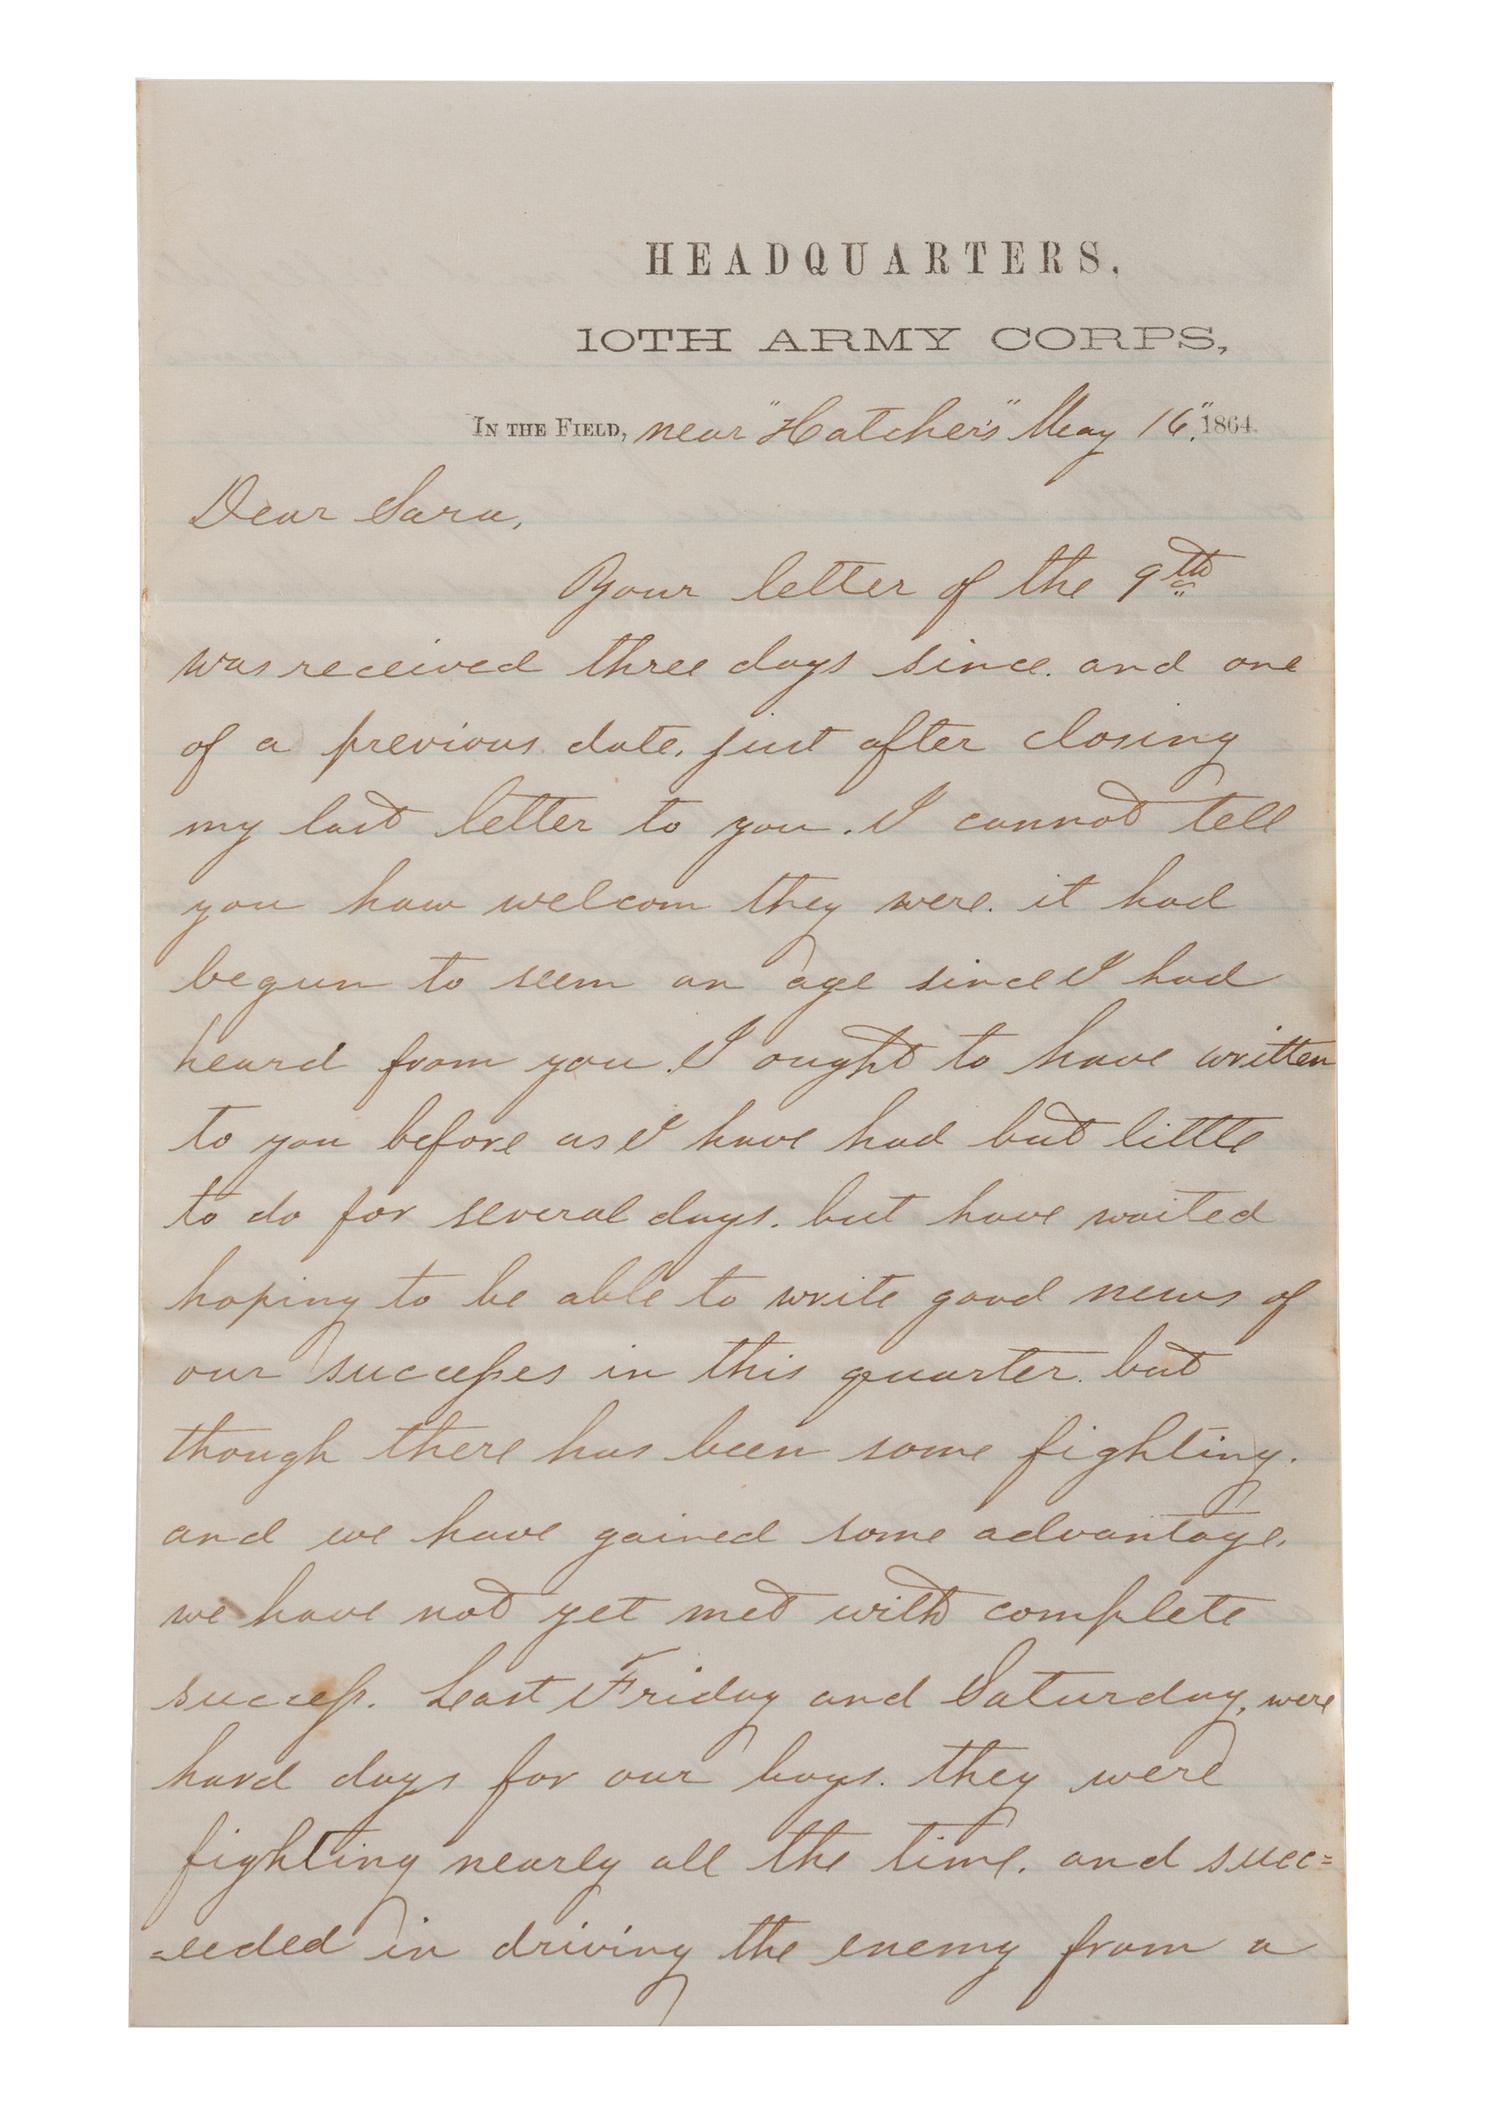 HEADQUARTERS,
10TH ARMY CORPS,
IN THE FIELD, near "Hatcher's" May 16", 1864.
Dear Sara,
Your letter of the 9th
was received three days since. and one
of a previous date. just after closing
my last letter to you. I cannot tell
you how welcom they were. it had
begun to seem an age since I had
heard from you. I ought to have written
to you before as I have had but little
to do for several days. but have waited
hoping to be able to write good news of
our successes in this quarter. but
though there has been some fighting.
and we have gained some advantage.
we have not yet met with complete
success. Last Friday and Saturday, were
hard days for our boys. they were
fighting nearly all the time. and succ=
=eeded in driving the enemy from a